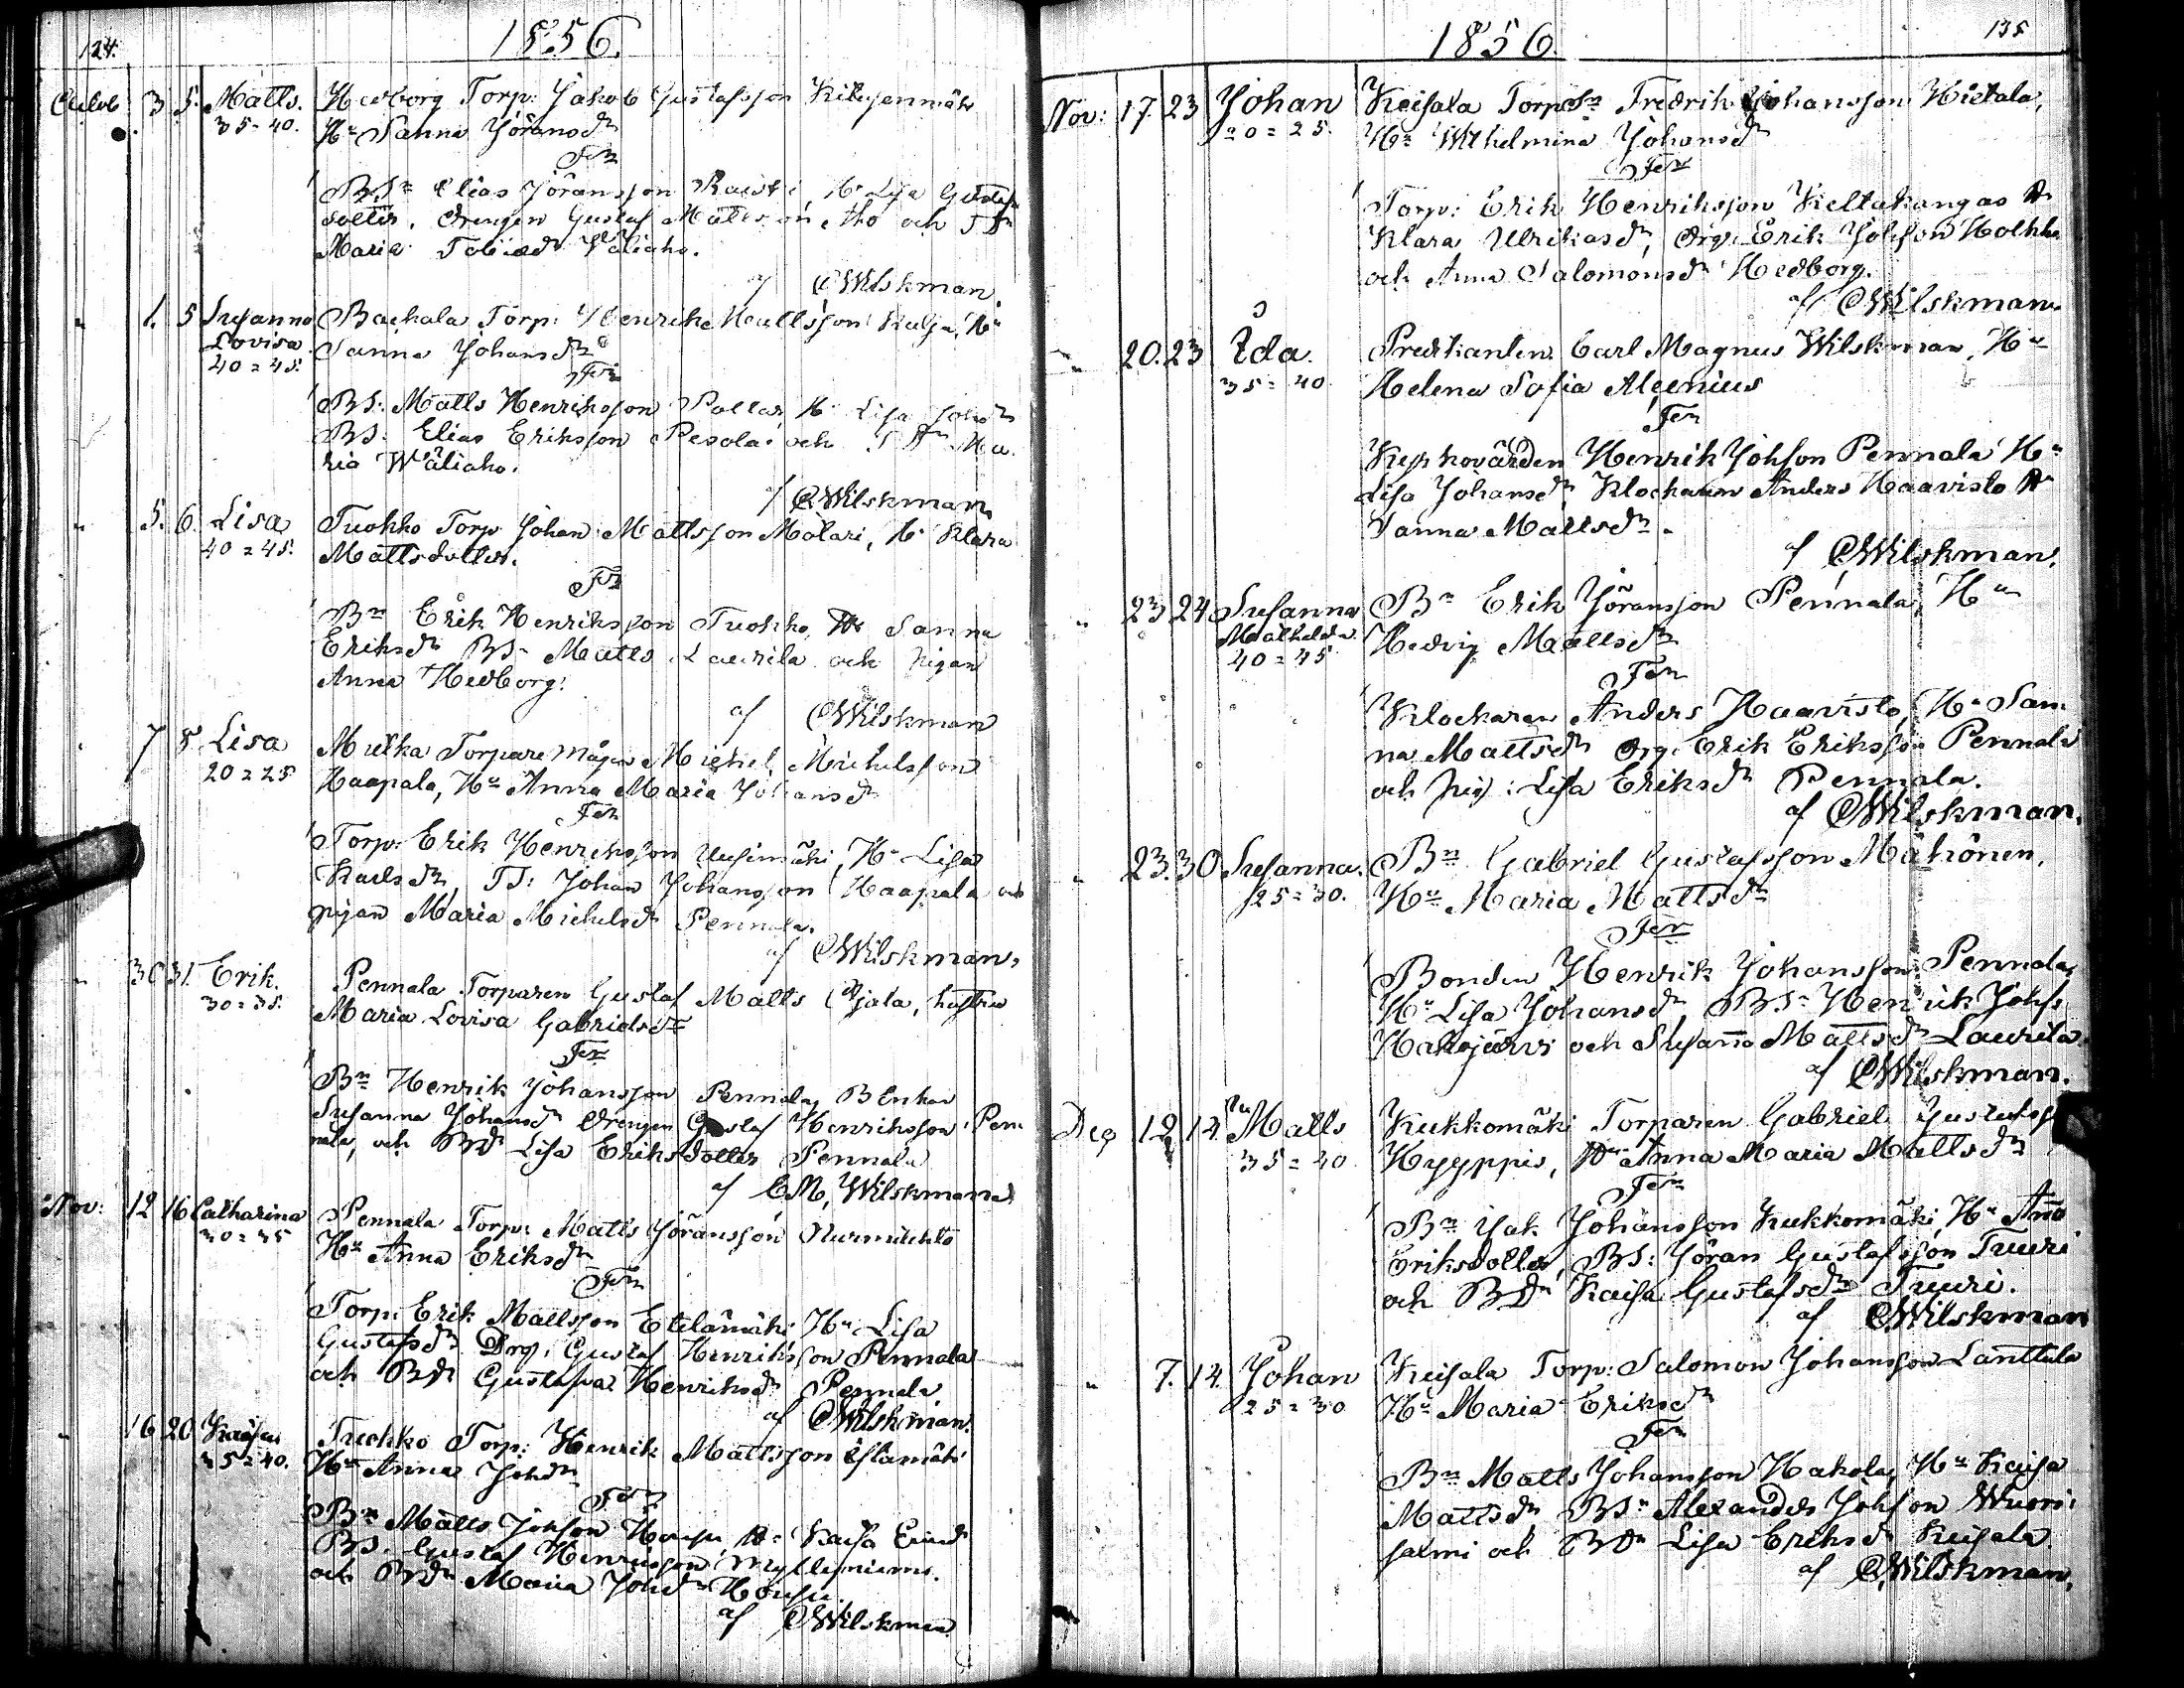 124.
1856.
3 5. Matts. Hedborg Torp: Jakob Gustafsson
35-40. Hu Sanna Jöransdr
Fr
BSn Elias Jöransson Hu Lisa Gustafs
dotter. Drengen Gustaf Mattsson Aho och
Maria Väliaho.
af CMWilskman.
1. 5 Susanna Torp: Henrik Mattsson Hu
Lovisa Sanna Johansdr
40=45.
Fr
BS: Matts Henriksson Hu Lisa Johdr
BS: Elias Eriksson Pesola och Ma
ria Wäliaho.
af CMWilskman
5. 6. Lisa Tuokko Torp Johan Mattsson Molari, Hu Klara
40=45. Mattsdotter.
Fr
Bn Erik Henriksson Tuokko, Hu Sanna
Eriksdr BSn Matts Laurila och pigan
Anna Hedborg.
af CMWilskman
7 8. Lisa Torpare mågen Michel Michelsson
20=25 Haapala, Hu Anna Maria Johansdr
Fr
Torp: Erik Henriksson Uusimäki, Hu Lisa
Karlsdr, TS: Johan Johansson Haapala och
pigan Maria Michelsdr Pennala.
af CMWilskman,
30 31. Erik. Pennala Torparen Gustaf Matts hustru
30=35. Maria Lovisa Gabrielsdr
Fr
Bn Henrik Johansson Pennala, BEnkan
Susanna Johansdr Drengen Gustaf Henriksson Pen
nala, och BDr Lisa Eriksdotter Pennala
af CM, Wilskman
Nov: 12 16 Catharina Pennala Torp: Matts Jöransson
30=35 Hu Anna Eriksdr
Fr
Torp: Erik Mattsson Etelämäki Hu Lisa
Gustafsdr Drg: Gustaf Henriksson Pennala
och BDr Gustafva Henriksdr Pennala
af CMWilskman.
16 20 Kaisa Tuokko Torp: Henrik Mattsson
35=40. Hu Anna Johdr
Fr
Bn Matts Johsson Hu Kaisa
BS. Gustaf Henriksson Myllyniemi.
och BDr Maria Johdr
af CMWilskman
135
1856.
Nov: 17. 23 Johan Keisala Torp Fredrik Johansson Hietala,
20=25. Hu Wilhelmina Johansdr
Fr
Torp: Erik Henriksson Keltakangas Hu
Klara Ulrikasdr, Drg: Erik Johsson
och Anna Salomonsdr Hedborg.
af CMWilskman
20. 23 Ida. Predikanten Carl Magnus Wilskman, Hu
35=40. Helena Sofia Alcenius
Fr
Kyrkovärden Henrik Johsson Pennala Hu
Lisa Johansdr, Klockaren Anders Haavisto Hu
Sanna Mattsdr.
af CMWilskman.
23 24 Susanna Bn Erik Jöransson Pennala, Hu
Mathilda Hedvig Mattsdr
40=45
Fr
Klockaren Anders Haavisto, Hu San
na Mattsdr Drg: Erik Eriksson Pennala
och pig: Lisa Eriksdr Pennala.
af CMWilskman.
23. 30 Susanna. Bn Gabriel Gustafsson Mähönen,
25=30. Hu Maria Mattsdr
Fr
Bonden Henrik Johansson Pennala,
Hu Lisa Johansdr, BSn Henrik Johs
Hakojärvi och Susanna Mattsdr Laurila.
af CMWilskman.
12 14. Matts Kukkomäki Torparen Gabriel Gustafss
35=40 Hyyppis, Hu Anna Maria Mattsdr
Fr
Bn Jak Johansson Kukkomäki, Hu Anna
Eriksdotter, BS: Jöran Gustafsson Tuuri
och BDr Kaisa Gustafsdr Tuuri.
af CMWilskman
7. 14. Johan Keisala Torp: Salomon Johansson Lanttala
25=30 Hu Maria Eriksdr
Fr
Bn Matts Johansson Hakola, Hu Kaisa
Mattsdr BSn Alexander Johsson Wuori
salmi och BDr Lisa Eriksdr Keisala.
af CMWilskman,